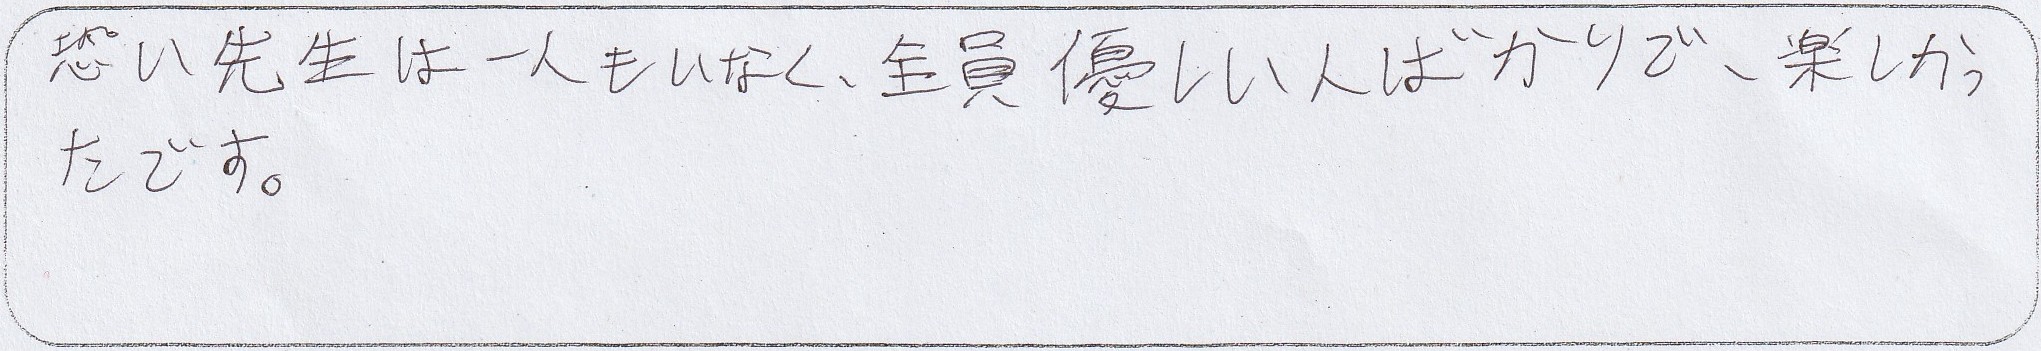 恐い先生は一人もいなく、全員優しい人ばかりで、楽しかっ
たです。